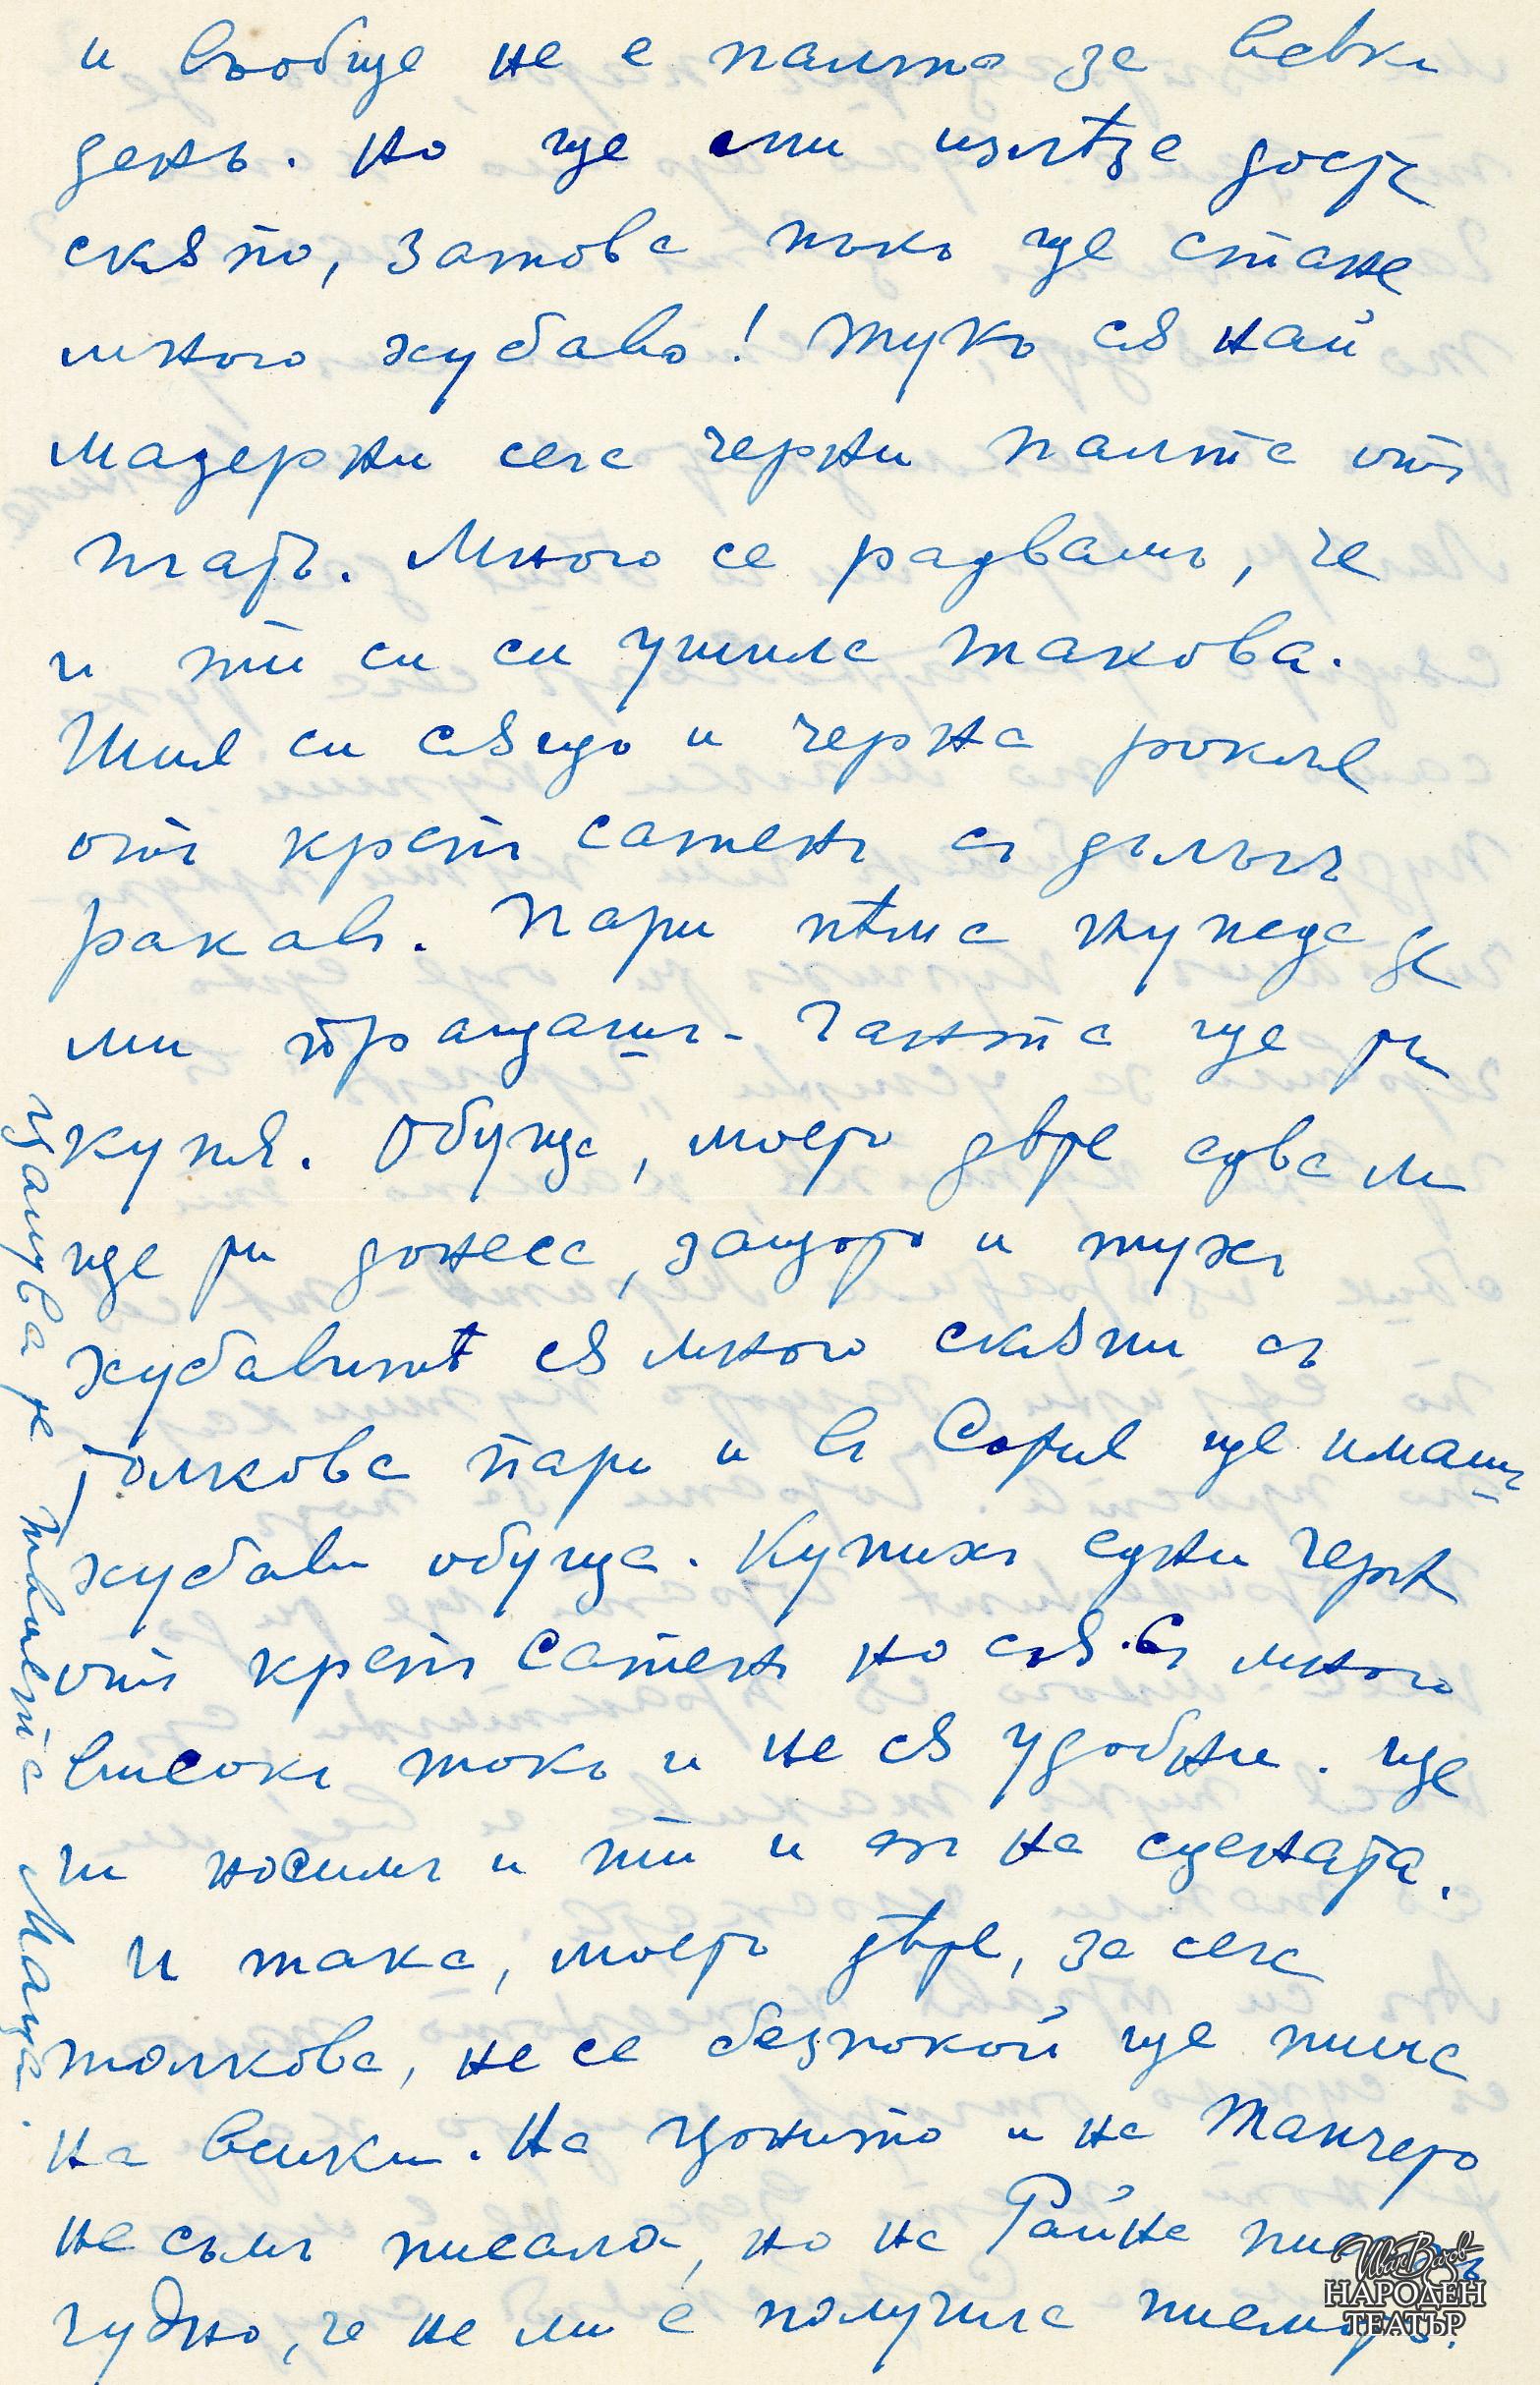 и въобще не е палто за всѣки
день. Но ще ми излѣзе доста
скѫпо, затова пъкъ ще стане
много хубаво! Тукъ сѫ най
модерни сега черни палта отъ
платъ. Много се радвамъ, че
и ти си си ушила такова.
Шия си сѫщо и черна рокля
отъ крепъ сатенъ съ дълъгъ
ракавъ. Пари нѣма нужда да
ми пращашъ. Чанта ще ти
купя. Обуща, моето дѣте едва ли
ще ти донеса, защото и тукъ
хубавитѣ сѫ много скѫпи съ
толкова пари и въ София ще имашъ
хубави обуща. Купихъ едни черни
отъ крепъ сатенъ но сѫ съ много
високъ токъ и не сѫ удобни. Ще
ги носимъ и ти и азъ на сцената.
И така, моето дѣте, за сега
толкова, не се безпокой ще пиша
на всички. На Цонито и на Танчето
не съмъ писала, но на Райна писахъ
чудно, че не ми е получила писмото.
Цалува те твоята Маца.
Иван Вазов
НАРОДЕН
ТЕАТЪР